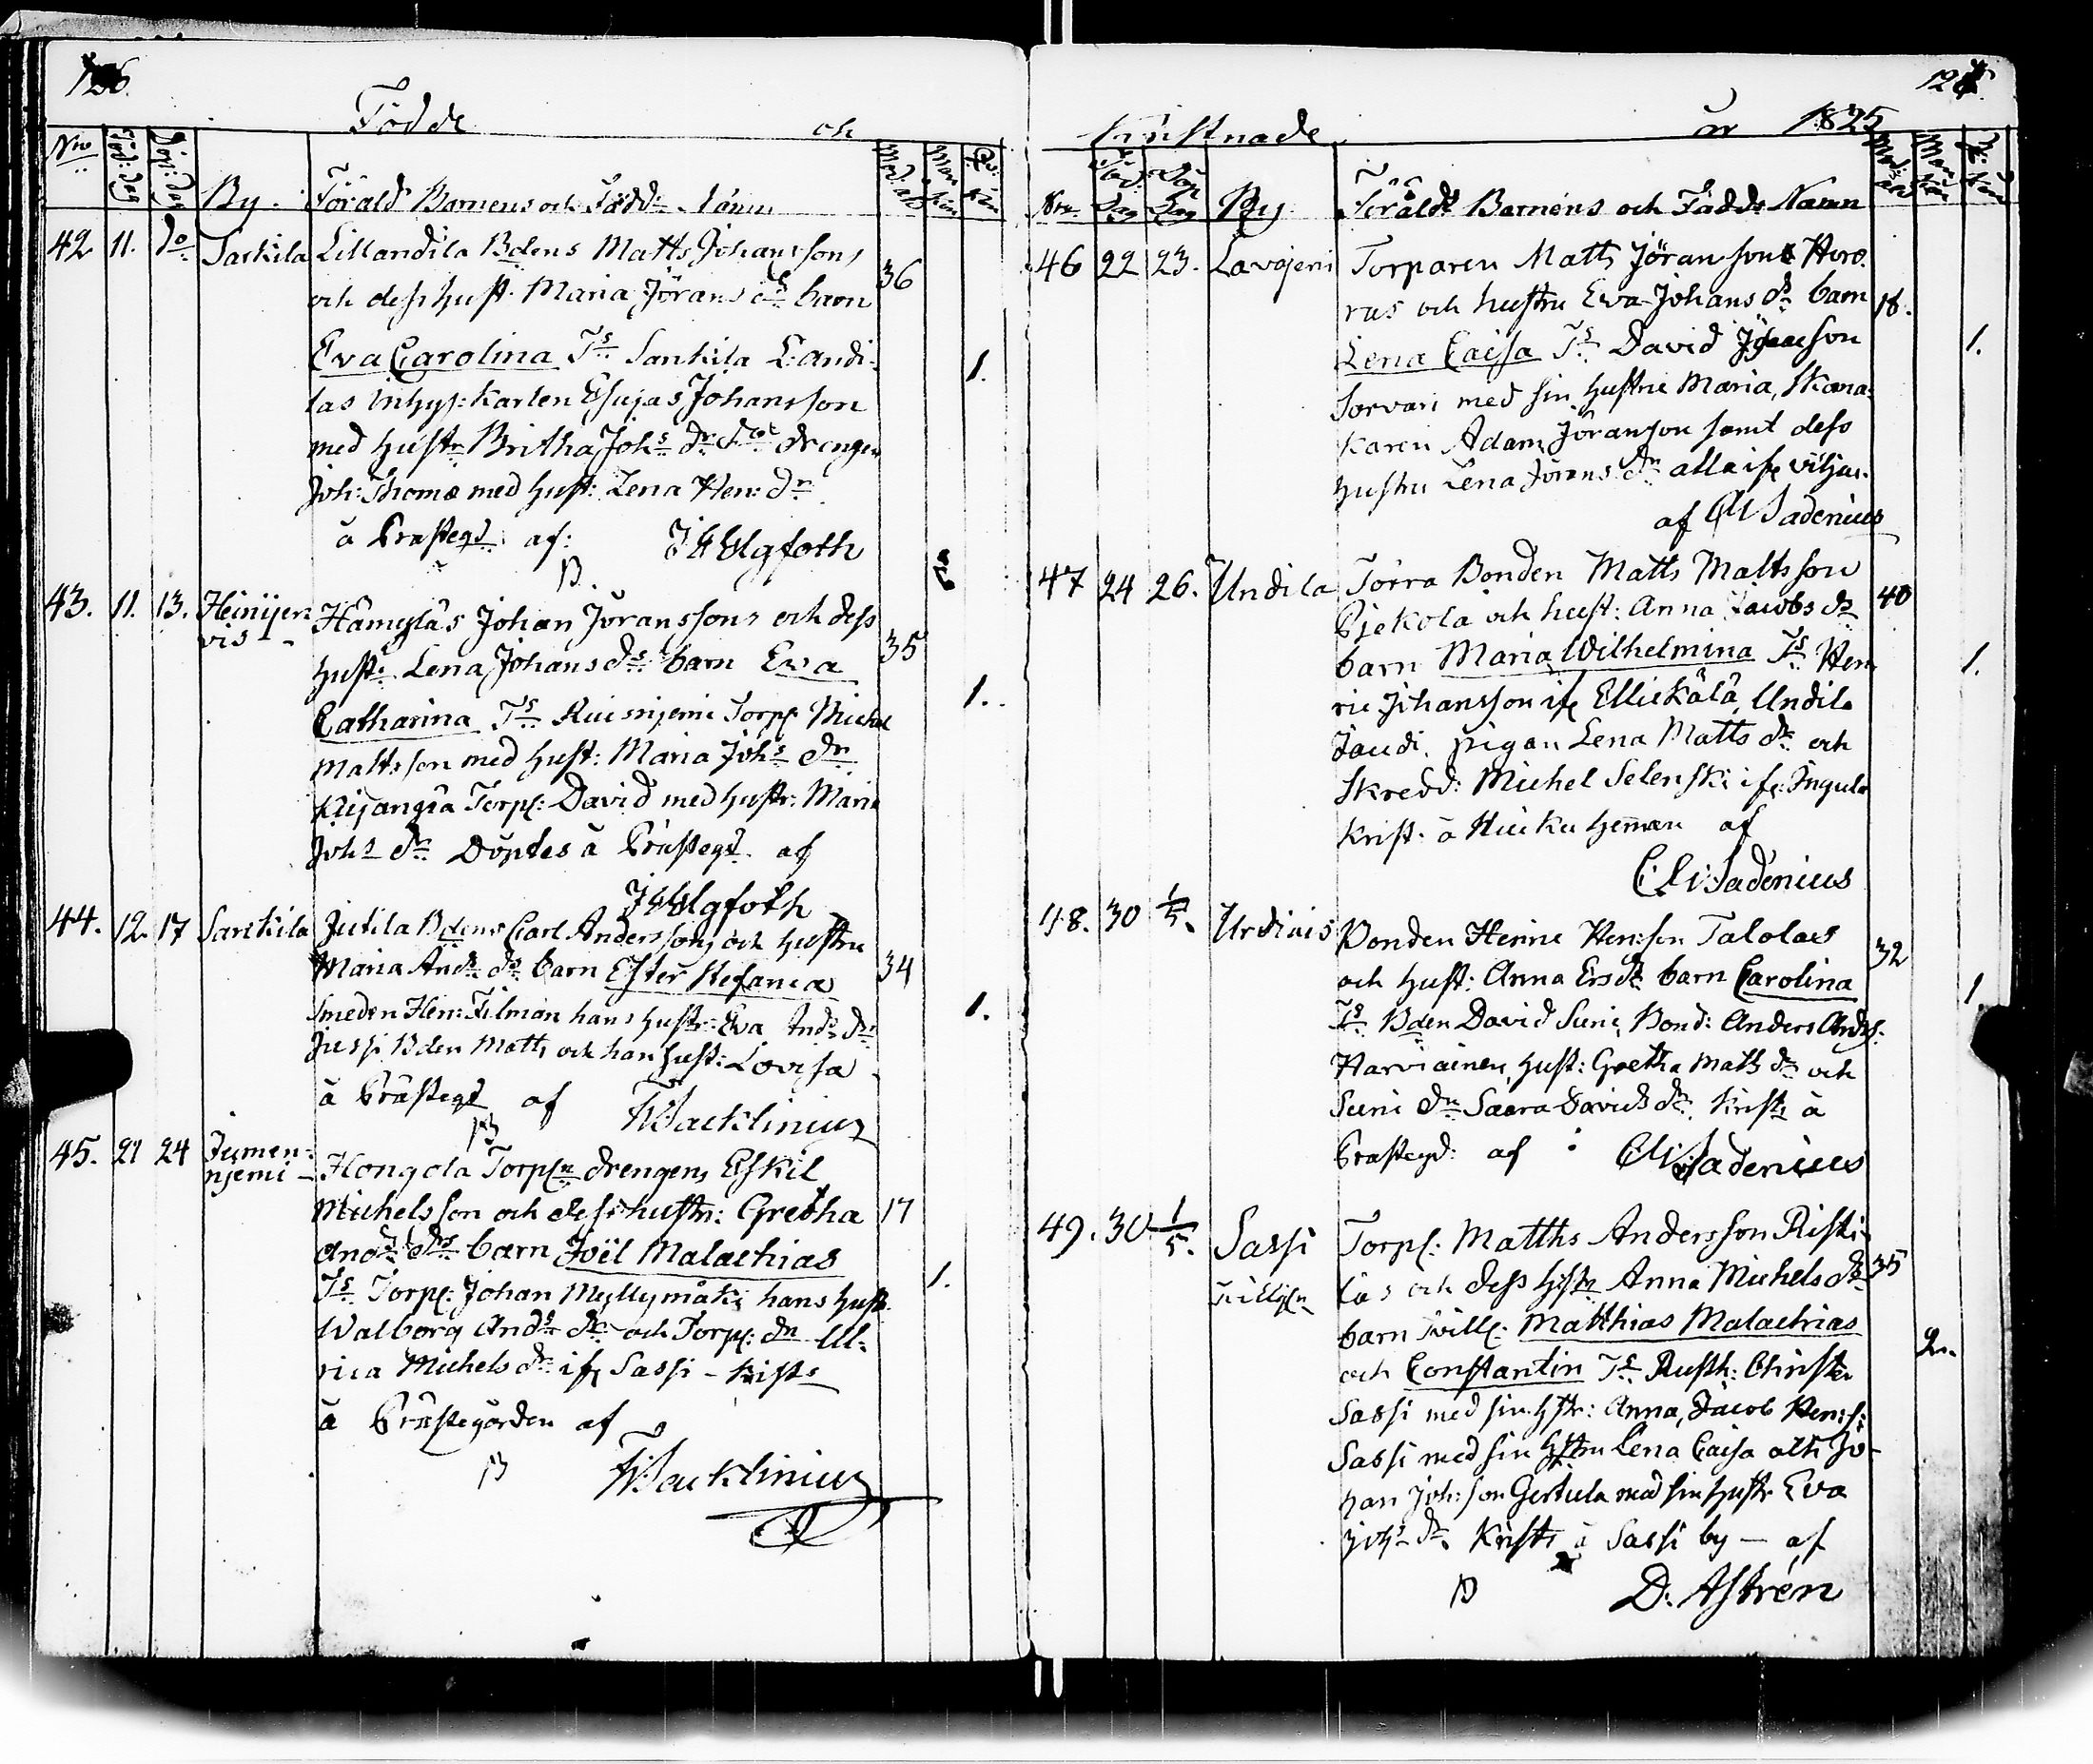 126.
Födde och
No Föd: dag Döp: dag By. Föräld Barnens och Fadd: Namn Mod: åld Man kön Qv: kön
42 11. do Sarkila Lillandila Bdens Matts Johanssons 36
och dess hust. Maria Jörans dr barn
Eva Carolina Ts Sarkila L: andi- 1.
las inhys: karlen Esajas Johansson
med hustr Britha Johs dr drengen
Joh: Thomæ med hust: Lena Hen: dr
å Prästegd: af:
43. 11. 13. Heinijer- Hämylas Johan Jöranssons och dess 35
vis
hust: Lena Johans dr barn Eva
Catharina Ts Ruisnjemi Torp: Michel 1.
Mattsson med hust: Maria Johs dr
Torp: David med hustr: Maria
Johs dr Döptes å Prästegd. af
44. 12. 17 Sarkila Jutila Bdens Carl Anderssons och hustru
Maria Ands dr barn Ester Stefania 34
Smeden Hen: Filman hans hustr: Eva Ands dr 1.
Jussi Bden Matts och hans hust: Lovisa
å Prästegd af
Wacklinius
45. 21 24 Jumen- Hongola Torp: drengens Eskil
njemi
Michelsson och dess hustr: Gretha 17
Ands dr barn Joël Malachias
Ts Torp: Johan Myllymäki hans hustr. 1.
Walborg Ands dr och Torp: dr Ul-
rica Michels dr if: Sassi - Krists
å Prästegården af
Wacklinius
127.
Kristnade år 1825
No. Föd: Dag Döp Dag By Föräldr Barnens och Fadd: Namn Mod: åld Man kön Qv: kön
46 22 23. Lavajervi Torparen Matts Jöransson
och hustru Eva Johans dr barn 18.
Lena Caisa Ts David 1.
Sorvari med sin hustru Maria, Skona-
karen Adam Jöransson samt dess
hustru Lena Jörans dr alla if:
af Sadenius
47 24 26. Undila Torra Bonden Matts Mattsson
och hust: Anna Jacobs dr 40
barn Maria Wilhelmina Ts Hen- 1.
ric Johansson if: Ellickälä, Undila
Jaudi pigan Lena Matts dr och
Skredd: Michel Selenski if:
Krist. å heman af
Sadenius
48. 30 1/5. Urdiais Bonden Henric Hen:son Talolas
och hust: Anna Ers dr barn Carolina 32
Ts Bden David Suni, Bond: Anders Ands. 1.
Harviainen, hust: Gretha Matts dr och
Suni dr Saara Davids dr. Krists å
Prästegd: af Sadenius
49. 30 1/5. Sassi Torp: Matths Andersson Risti-
las och dess hustr Anna Michels dr 35
barn tvill: Matthias Malachias
och Constantin Ts Rusth: Christer 2.
Sassi med sin hstr: Anna, Jacob Hen:s:
Sassi med sin hstru Lena Caisa och Jo-
han Joh:son Gertula med sin hustr Eva
Johs dr Krists å Sassi by — af
D: Astrén